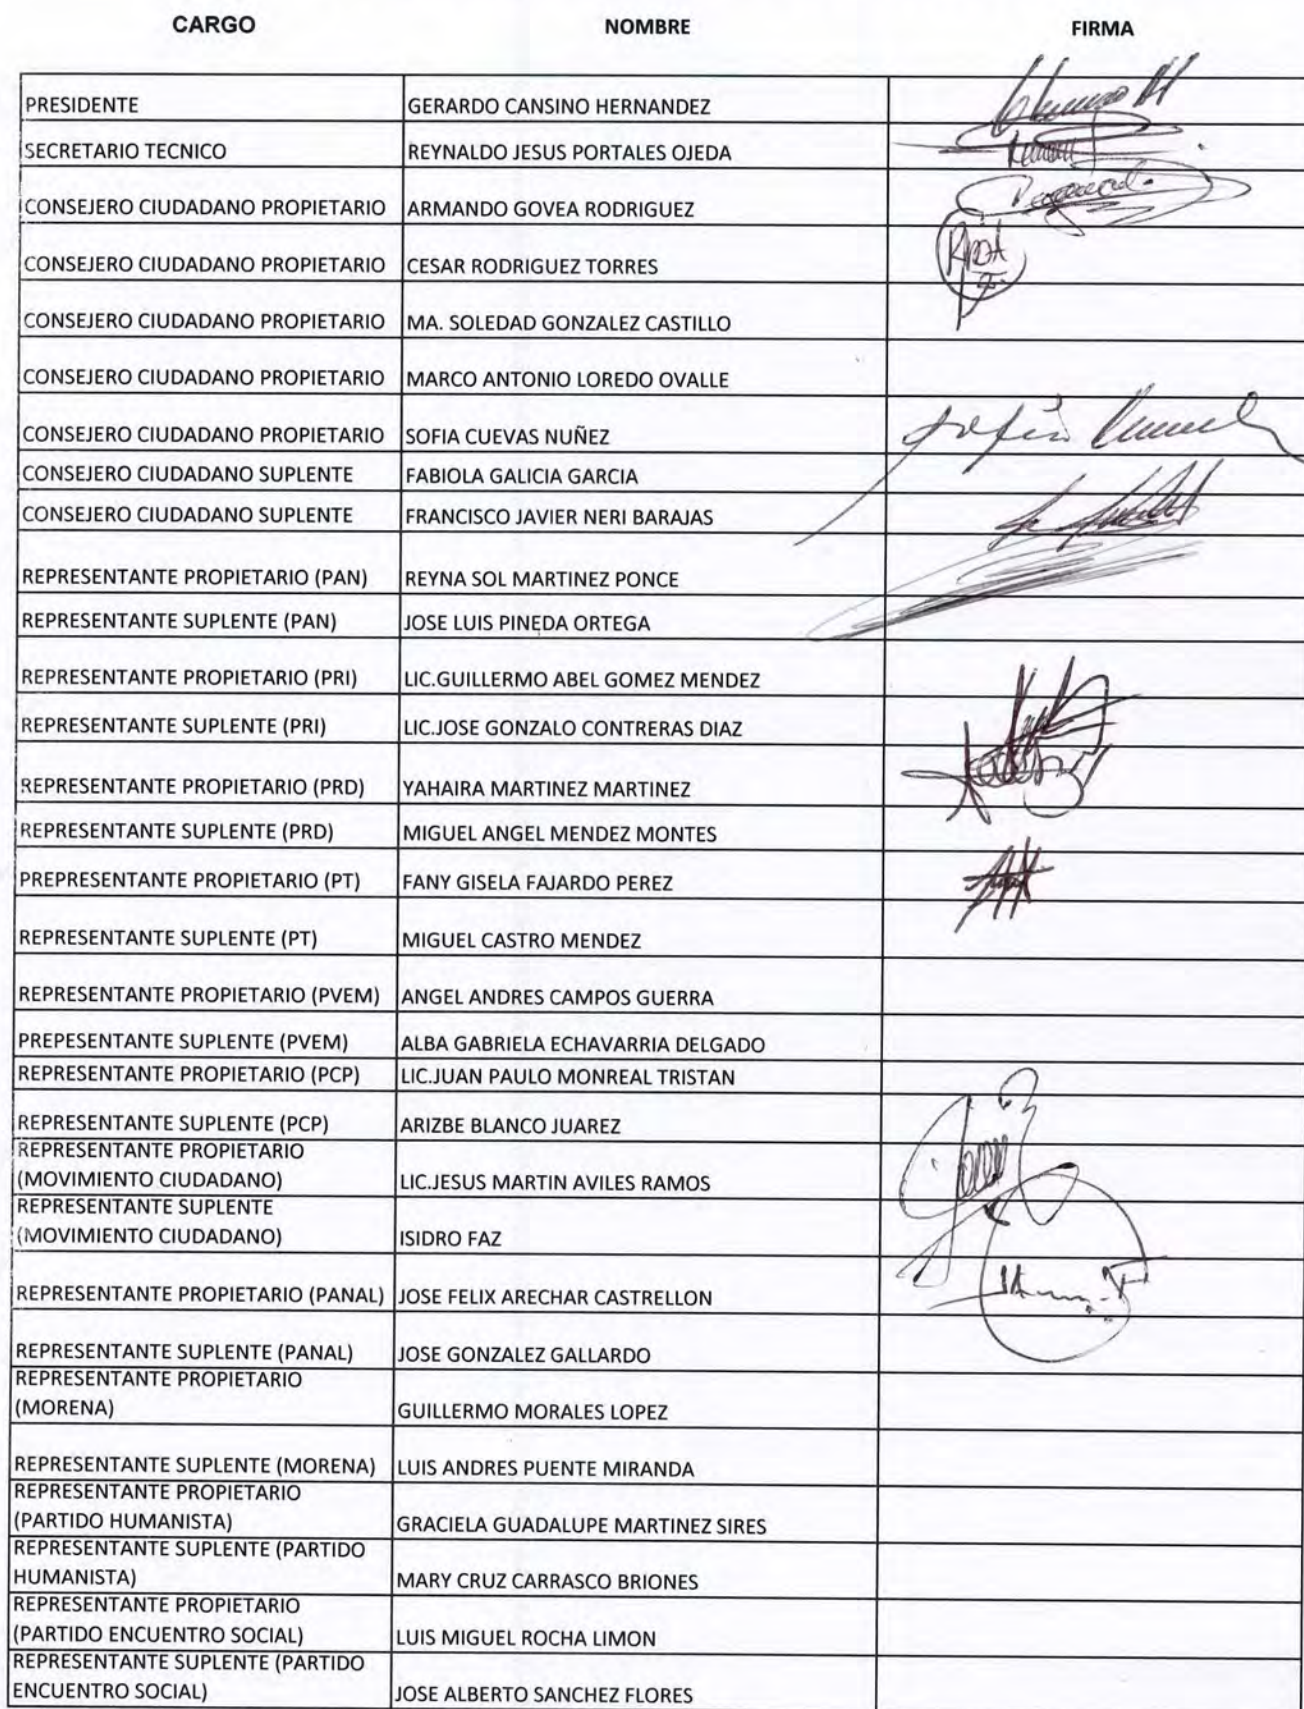 CARGO NOMBRE FIRMA
PRESIDENTE GERARDO CANSINO HERNANDEZ
SECRETARIO TECNICO REYNALDO JESUS PORTALES OJEDA
CONSEJERO CIUDADANO PROPIETARIO ARMANDO GOVEA RODRIGUEZ
CONSEJERO CIUDADANO PROPIETARIO CESAR RODRIGUEZ TORRES
CONSEJERO CIUDADANO PROPIETARIO MA. SOLEDAD GONZALEZ CASTILLO
CONSEJERO CIUDADANO PROPIETARIO MARCO ANTONIO LOREDO OVALLE
CONSEJERO CIUDADANO PROPIETARIO SOFIA CUEVAS NUÑEZ
CONSEJERO CIUDADANO SUPLENTE FABIOLA GALICIA GARCIA
CONSEJERO CIUDADANO SUPLENTE FRANCISCO JAVIER NERI BARAJAS
REPRESENTANTE PROPIETARIO (PAN) REYNA SOL MARTINEZ PONCE
REPRESENTANTE SUPLENTE (PAN) JOSE LUIS PINEDA ORTEGA
REPRESENTANTE PROPIETARIO (PRI) LIC.GUILLERMO ABEL GOMEZ MENDEZ
REPRESENTANTE SUPLENTE (PRI) LIC.JOSE GONZALO CONTRERAS DIAZ
REPRESENTANTE PROPIETARIO (PRD) YAHAIRA MARTINEZ MARTINEZ
REPRESENTANTE SUPLENTE (PRD) MIGUEL ANGEL MENDEZ MONTES
PREPRESENTANTE PROPIETARIO (PT) FANY GISELA FAJARDO PEREZ
REPRESENTANTE SUPLENTE (PT) MIGUEL CASTRO MENDEZ
REPRESENTANTE PROPIETARIO (PVEM) ANGEL ANDRES CAMPOS GUERRA
PREPESENTANTE SUPLENTE (PVEM) ALBA GABRIELA ECHAVARRIA DELGADO
REPRESENTANTE PROPIETARIO (PCP) LIC.JUAN PAULO MONREAL TRISTAN
REPRESENTANTE SUPLENTE (PCP) ARIZBE BLANCO JUAREZ
REPRESENTANTE PROPIETARIO
(MOVIMIENTO CIUDADANO) LIC.JESUS MARTIN AVILES RAMOS
REPRESENTANTE SUPLENTE
(MOVIMIENTO CIUDADANO) ISIDRO FAZ
REPRESENTANTE PROPIETARIO (PANAL) JOSE FELIX ARECHAR CASTRELLON
REPRESENTANTE SUPLENTE (PANAL) JOSE GONZALEZ GALLARDO
REPRESENTANTE PROPIETARIO
(MORENA) GUILLERMO MORALES LOPEZ
REPRESENTANTE SUPLENTE (MORENA) LUIS ANDRES PUENTE MIRANDA
REPRESENTANTE PROPIETARIO
(PARTIDO HUMANISTA) GRACIELA GUADALUPE MARTINEZ SIRES
REPRESENTANTE SUPLENTE (PARTIDO
HUMANISTA) MARY CRUZ CARRASCO BRIONES
REPRESENTANTE PROPIETARIO
(PARTIDO ENCUENTRO SOCIAL) LUIS MIGUEL ROCHA LIMON
REPRESENTANTE SUPLENTE (PARTIDO
ENCUENTRO SOCIAL) JOSE ALBERTO SANCHEZ FLORES